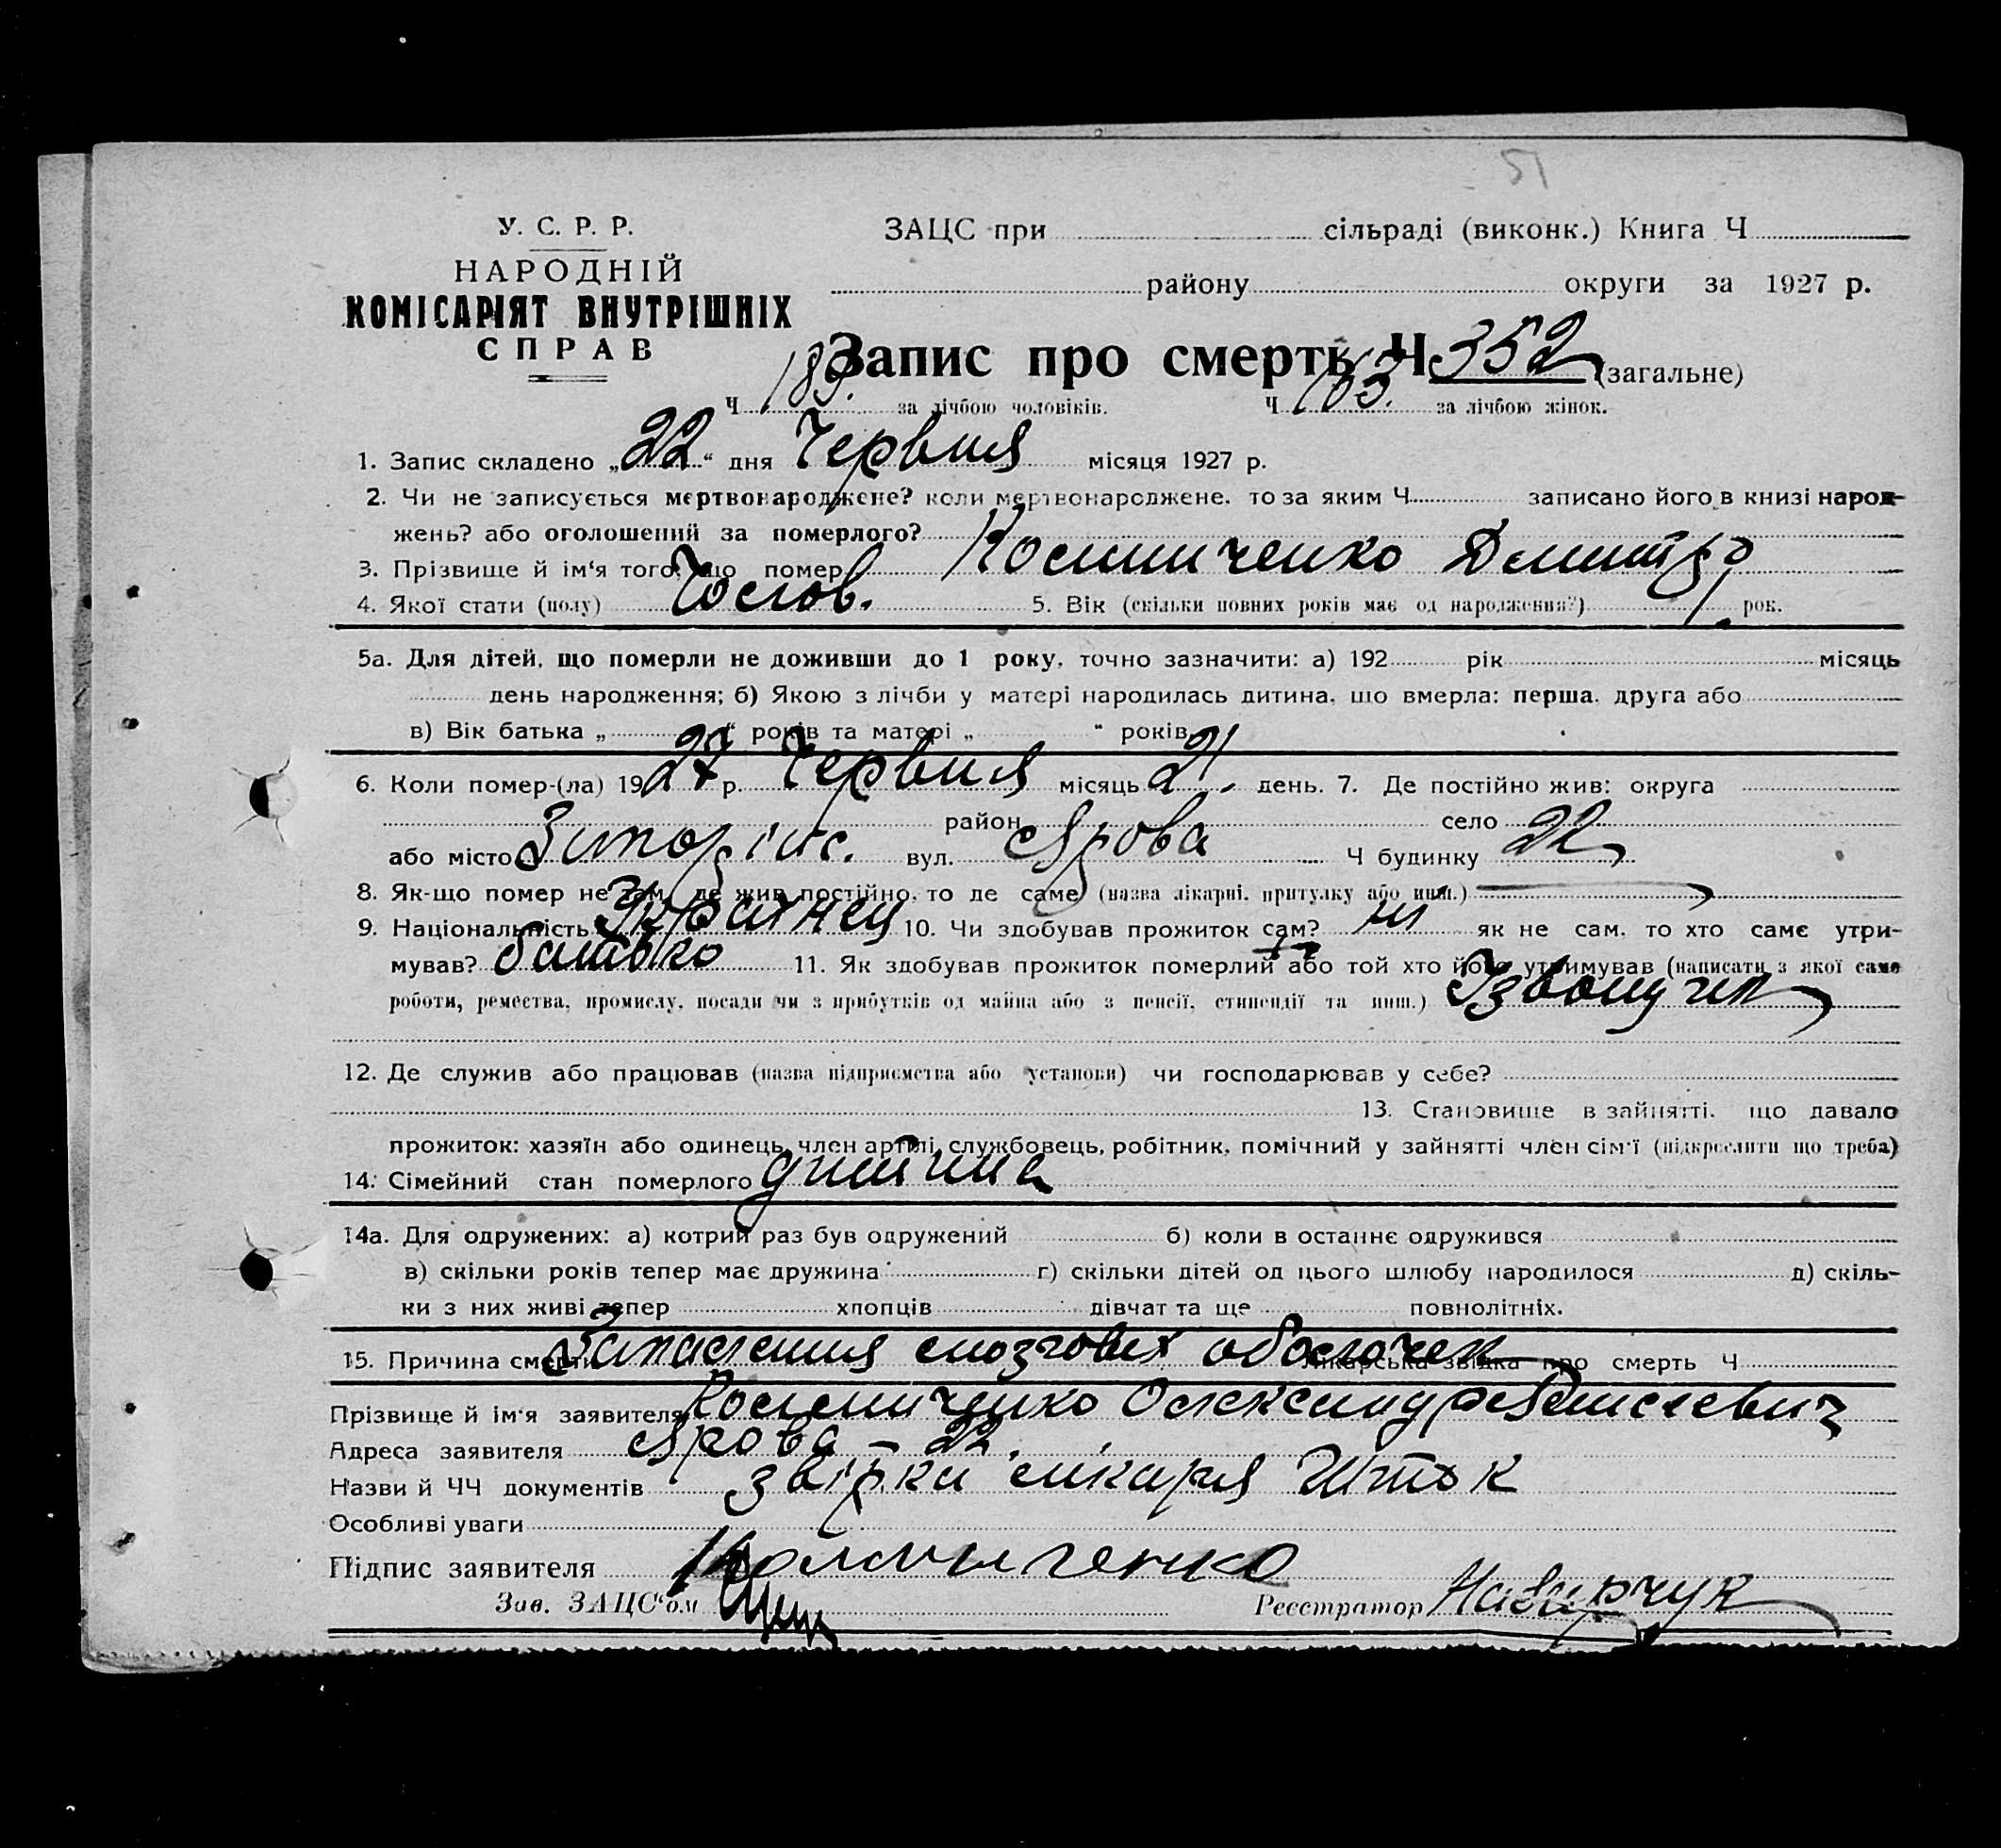 51
У. С. Р. Р.
НАРОДНІЙ
КОМІСАРІЯТ ВНУТРІШНІХ
СПРАВ
ЗАЦС при сільраді (виконк.) Книга Ч
району округи за 1927 р.
Запис про смерть Ч 352 (загальне)
Ч 189. за лічбою чоловіків. Ч 163. за лічбою жінок.
1. Запис складено „22“ дня Червня місяця 1927 р.
2. Чи не записується мертвонароджене? коли мертвонароджене, то за яким Ч записано його в книзі народ-
жень? або оголошений за померлого?
3. Прізвище й ім'я того, що помер Дмитро
4. Якої стати (полу) Чолов. 5. Вік (скільки повних років має од народження?) 1. рок.
5а. Для дітей, що померли не доживши до 1 року, точно зазначити: а) 192 рік місяць
день народження; б) Якою з лічби у матері народилась дитина, що вмерла: перша, друга або
в) Вік батька „ “ років та матері „ “ років
6. Коли помер-(ла) 1927 р. Червня місяць 21. день. 7. Де постійно жив: округа
район село
або місто вул. Ярова Ч будинку 22
8. Як-що помер не там, де жив постійно, то де саме (назва лікарні, притулку або инш.)
9. Національність Українец 10. Чи здобував прожиток сам? ні як не сам, то хто саме утри-
мував? батько 11. Як здобував прожиток померлий або той хто його утримував (написати з якої саме
роботи, ремества, промислу, посади чи з прибутків од майна або з пенсії, стипендії та инш.) Ізвощик
12. Де служив або працював (назва підприємства або установи) чи господарював у себе?
13. Становище в зайнятті, що давало
прожиток: хазяїн або одинець, член артілі, службовець, робітник, помічний у зайнятті член сім'ї (підкреслити що треба)
14. Сімейний стан померлого дитина
14а. Для одружених: а) котрий раз був одружений б) коли в останнє одружився
в) скільки років тепер має дружина г) скільки дітей од цього шлюбу народилося д) скіль-
ки з них живі тепер хлопців дівчат та ще повнолітніх.
15. Причина смерти Запалення мозгових оболочек Лікарська звідка про смерть Ч
Прізвище й ім'я заявителя Олександр
Адреса заявителя Ярова – 22.
Назви й ЧЧ документів лікаря
Особливі уваги
Підпис заявителя
Зав. ЗАЦС'ом Реєстратор